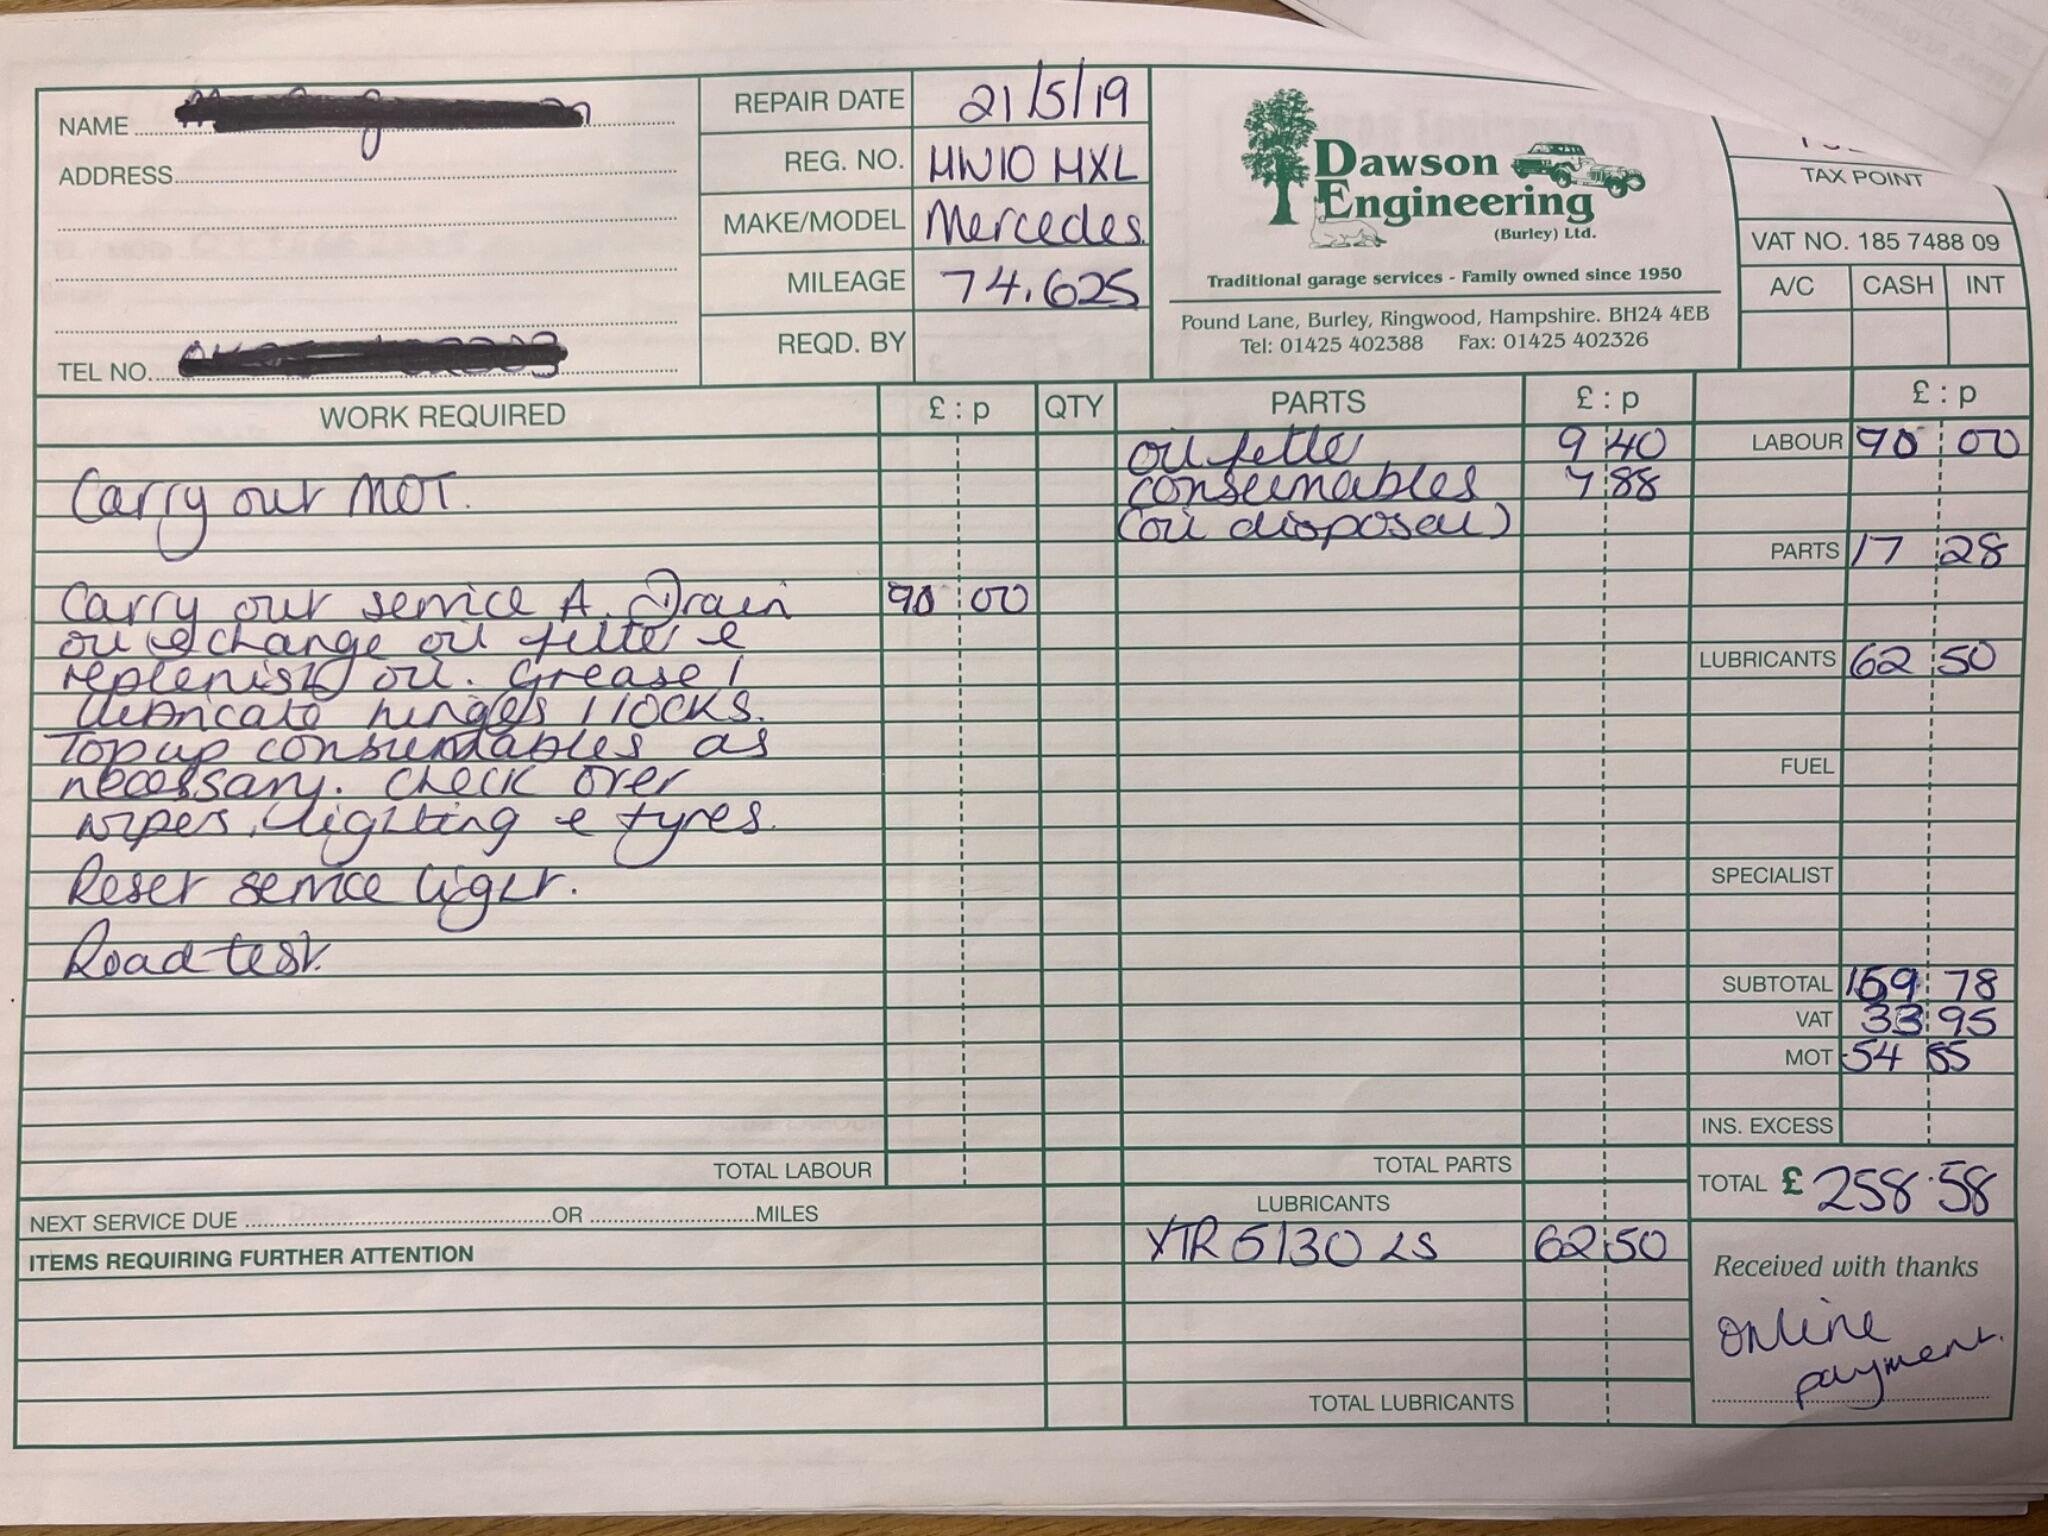 NAME
ADDRESS
TEL NO.
REPAIR DATE 21/5/19
REG. NO. HW10 HXL
MAKE/MODEL Mercedes.
MILEAGE 74,625
REQD. BY
Dawson
Engineering
(Burley) Ltd.
Traditional garage services - Family owned since 1950
Pound Lane, Burley, Ringwood, Hampshire. BH24 4EB
Tel: 01425 402388 Fax: 01425 402326
TAX POINT
VAT NO. 185 7488 09
A/C CASH INT
WORK REQUIRED £ : p
Carry out MOT.
Carry out service A. Drain 90 00
oil & change oil filter &
replenish oil. Grease /
lubricate hinges / locks.
Top up consumables as
necessary. Check over
wipers, lighting & tyres.
Reset service light.
Road test.
TOTAL LABOUR
QTY PARTS £ : p
oil filter 9 40
consumables 7 88
(oil disposal)
TOTAL PARTS
LUBRICANTS
XTR 5/30 LS 62 50
TOTAL LUBRICANTS
£ : p
LABOUR 90 00
PARTS 17 28
LUBRICANTS 62 50
FUEL
SPECIALIST
SUBTOTAL 169 78
VAT 33 95
MOT 54 85
INS. EXCESS
TOTAL £ 258.58
Received with thanks
online
payment.
NEXT SERVICE DUE OR MILES
ITEMS REQUIRING FURTHER ATTENTION